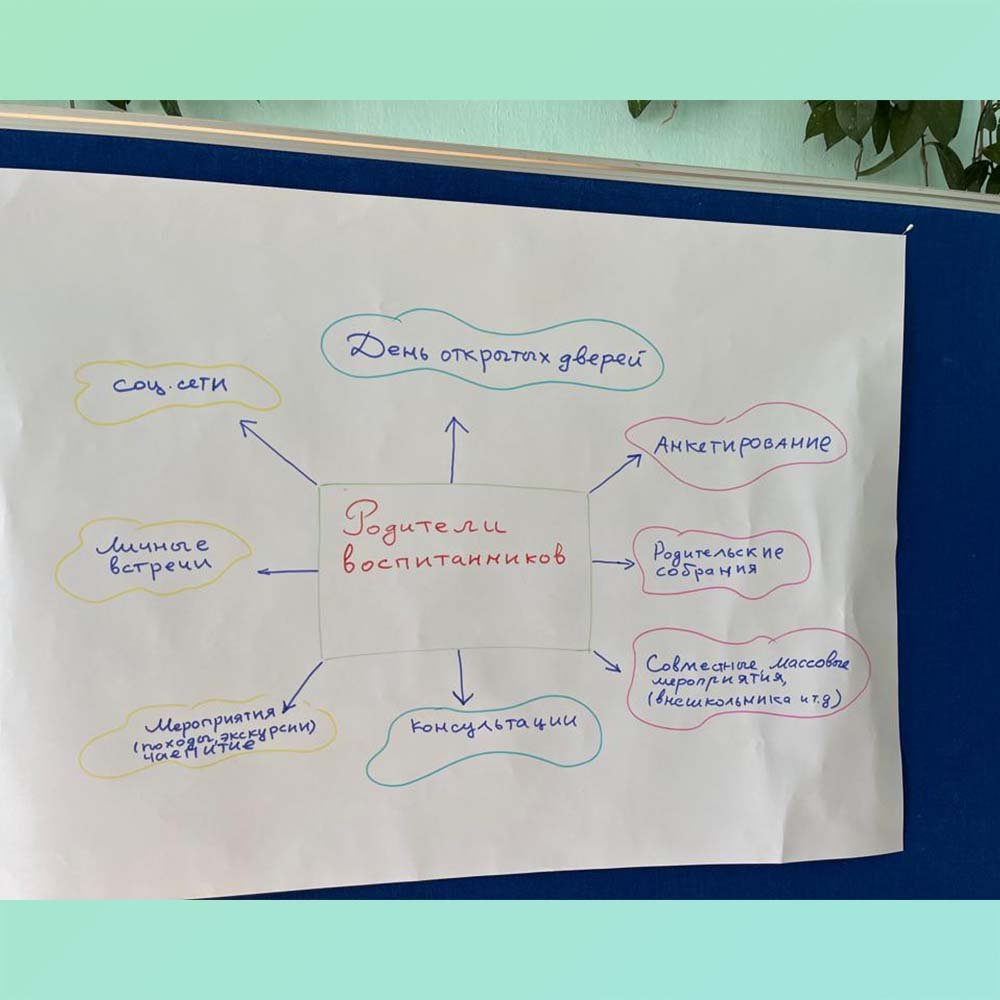 День открытых дверей
соц. сети
Анкетирование
Родители
воспитанников
Личные
встречи
Родительские
собрания
Совместные, массовые
мероприятия,
(внешкольника и т.д)
Мероприятия
(походы, экскурсии)
чаепитие
консультации